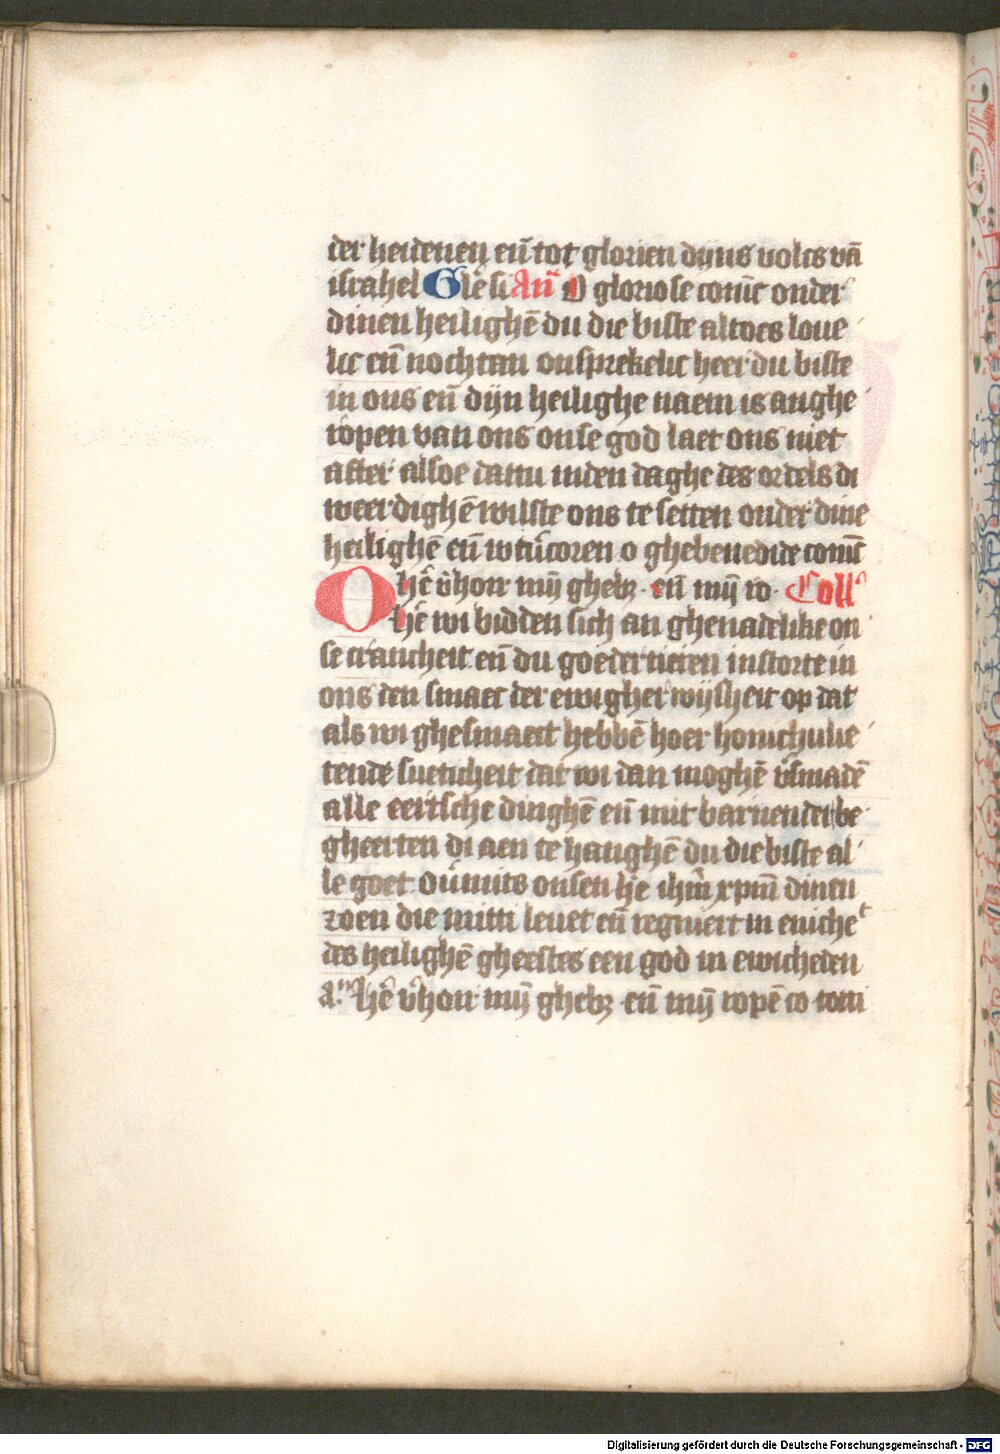 der heidenen eñ tot glorien dyns volcs vā
israhel Glē si Añ O gloriose coninc onder
dinen heilighē du die biste altoes loue
lic eñ nochtan onsprekelic heer du biste
in ons eñ dijn heilighe naem is anghe
ropen van ons onse god laet ons niet
after alsoe dattu inden daghe des ordels di
weerdighē wilste ons te setten onder dine
heilighē eñ wtũcoren o ghebenedide coninc
O hē v̄hoir mȳ ghebꝫ eñ mȳ ro Coll
hē wi bidden sich an ghenadelike on
se cranc heit eñ du goedertieren instorte in
ons den smaec der ewigher wijsheit op dat
als wi ghesmaect hebbē hoer honich vlie
tende suetichēit dat wi dan moghē v̄smadē
alle eertsche dinghē eñ mit barnender be
gheerten di aen te hanghē du die biste al
le goet Oũmits onsen hē ihm̄ xp̄m dinen
zoen die mitti leuet eñ regniert in eniche
des heilighē gheestes een god in ewicheden
a. hē v̄hoir mȳ ghebꝫ eñ mȳ ropē co toti
Digitalisierung gefördert durch die Deutsche Forschungsgemeinschaft - DFG